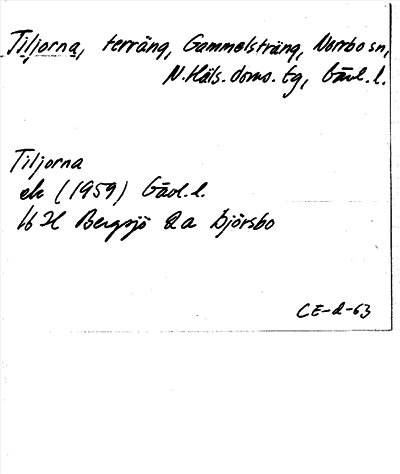 Tiljorna, terräng, Gammelsträng, Norrbo sn,
N. Häls. doms. tg, Gävl. l.
Tiljorna
ek (1959) Gävl. l.
16 H Bergsjö 2 a Björsbo
CE-d-63